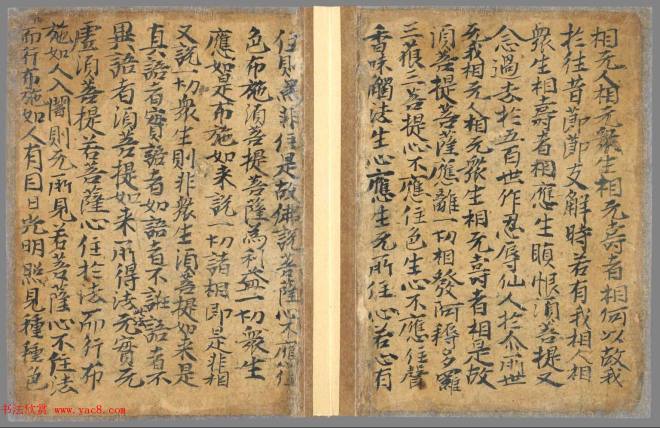 相无人相无衆生相无壽者相何以故我
於往昔節節支解時若有我相人相
衆生相壽者相應生瞋恨湏菩提又
念過去於五百世作忍辱仙人於尒所世
无我相无人相无衆生相无壽者相是故
湏菩提菩薩應離一切相發阿耨多羅
三藐三菩提心不應住色生心不應住聲
香味觸法生心應生无所住心若心有
住則為非住是故佛說菩薩心不應住
色布施湏菩提菩薩為利益一切衆生
應如是布施如来說一切諸相即是非相
又說一切衆生則非衆生湏菩提如来是
真語者實語者如語者不誑語者不
異語者湏菩提如来所得法无實无
虛湏菩提若菩薩心住於法而行布
施如人入闇則无所見若菩薩心不住法
而行布施如人有目日光明照見種種色
书法欣赏
www.yac8.com